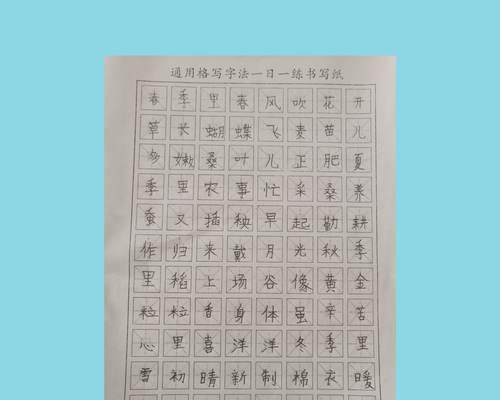 通用格写字法一日一练书写纸
春季里春风吹花开
草长蝴蝶飞麦苗儿
多嫩桑叶儿正肥夏
季里农事忙采桑养
蚕又插秧早起勤耕
作归来戴月光秋季
里稻上场谷像黄金
粒粒香身体虽辛苦
心里喜洋洋冬季里
雪初晴新制棉衣暖